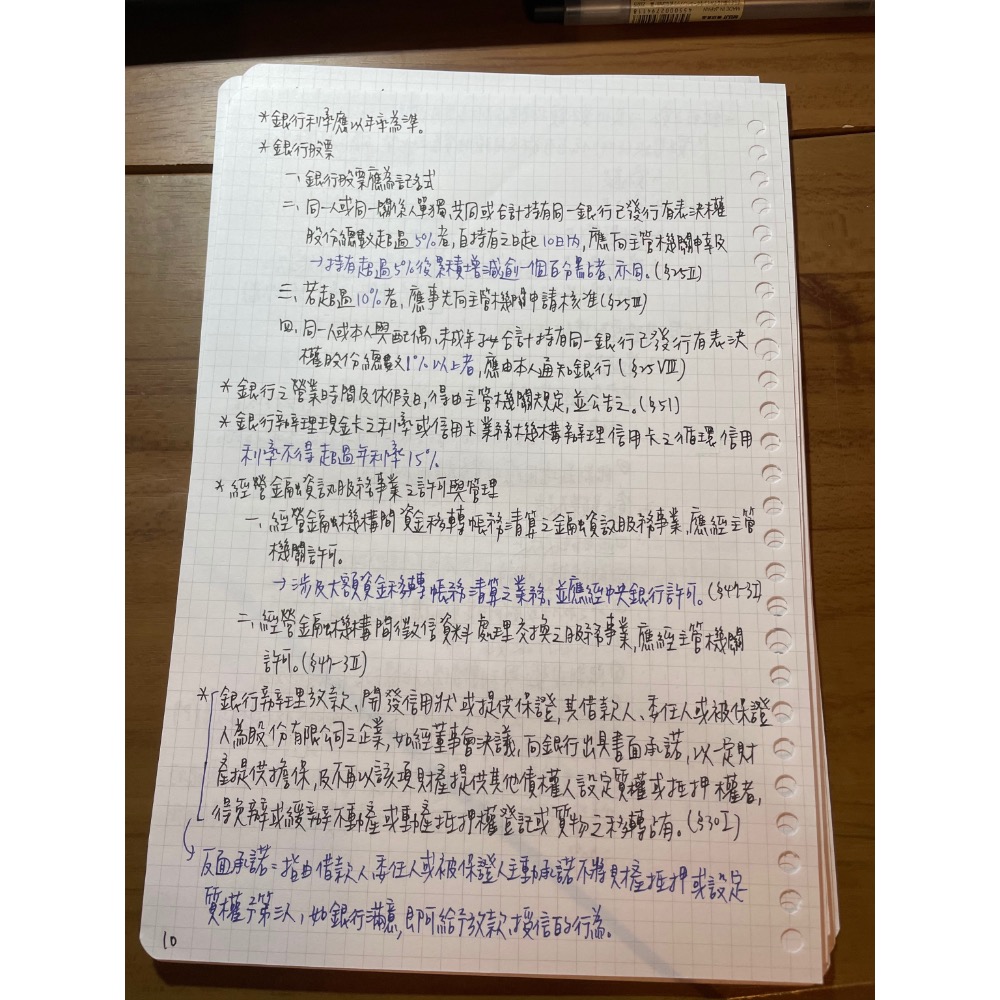 MADE IN JAPAN
*銀行利率應以年率為準。
*銀行股票
一、銀行股票應為記名式
二、同一人或同一關係人單獨、共同或合計持有同一銀行已發行有表決權
股份總數超過5%者,自持有之日起10日內,應向主管機關申報及
→持有超過5%後累積增減逾一個百分點者、亦同。(§25Ⅱ)
三、若超過10%者、應事先向主管機關申請核准(§25Ⅲ)
四、同一人或本人與配偶、未成年子女合計持有同一銀行已發行有表決
權股份總數1%以上者,應由本人通知銀行(§25Ⅷ)
*銀行之營業時間及休假日,得由主管機關規定,並公告之。(§51)
*銀行辦理現金卡之利率或信用卡業務機構辦理信用卡之循環信用
利率不得超過年利率15%
*經營金融資訊服務事業之許可與管理
一、經營金融機構間資金移轉帳務清算之金融資訊服務事業,應經主管
機關許可。
→涉及大額資金移轉帳務清算之業務、並應經中央銀行許可。(§47-3Ⅰ)
二、經營金融機構間徵信資料處理交換之服務事業,應經主管機關
許可。(§47-3Ⅱ)
*銀行辦理放款、開發信用狀或提供保證,其借款人、委任人或被保證
人為股份有限公司之企業,如經董事會決議,向銀行出具書面承諾,以一定財
產提供擔保,及不再以該項財產提供其他債權人設定質權或抵押權者,
得免辦或緩辦不動產或動產抵押權登記或質物之移轉占有。(§30Ⅰ)
反面承諾=指由借款人委任人或被保證人主動承諾不將財產抵押或設定
質權予第三人,如銀行滿意,即可給予放款、授信的行為。
10